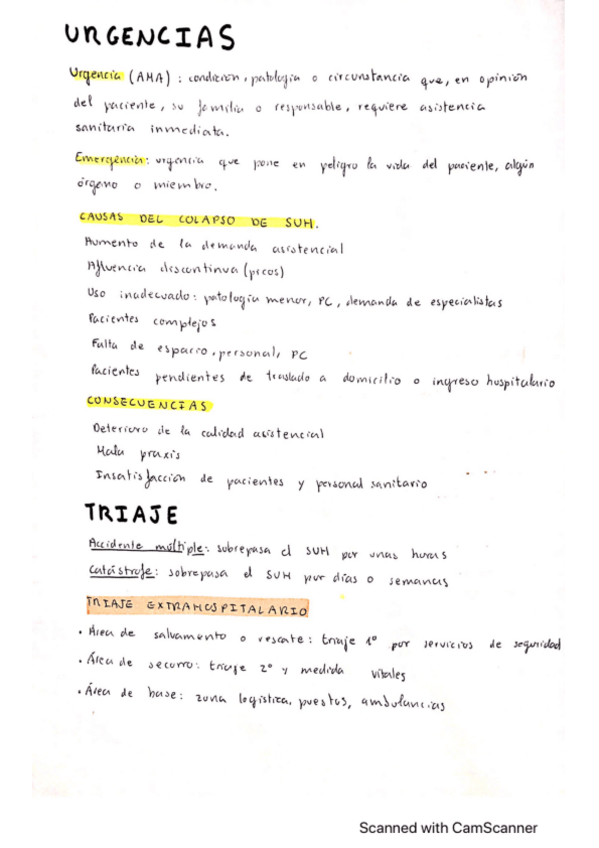 URGENCIAS
Urgencia (AMA) : condición, patología o circunstancia que, en opinión
del paciente, su familia o responsable, requiere asistencia
sanitaria inmediata.
Emergencia: urgencia que pone en peligro la vida del paciente, algún
órgano o miembro.
CAUSAS DEL COLAPSO DE SUH.
Aumento de la demanda asistencial
Afluencia discontinua (picos)
Uso inadecuado: patología menor, PC, demanda de especialistas
Pacientes complejos
Falta de espacio, personal, PC
Pacientes pendientes de traslado a domicilio o ingreso hospitalario
CONSECUENCIAS
Deterioro de la calidad asistencial
Mala praxis
Insatisfacción de pacientes y personal sanitario
TRIAJE
Accidente múltiple: sobrepasa el SUH por unas horas
Catástrofe: sobrepasa el SUH por días o semanas
TRIAJE EXTRAHOSPITALARIO
· Área de salvamento o rescate: triaje 1º por servicios de seguridad
· Área de socorro: triaje 2º y medida vitales
· Área de base: zona logística, puestos, ambulancias
Scanned with CamScanner